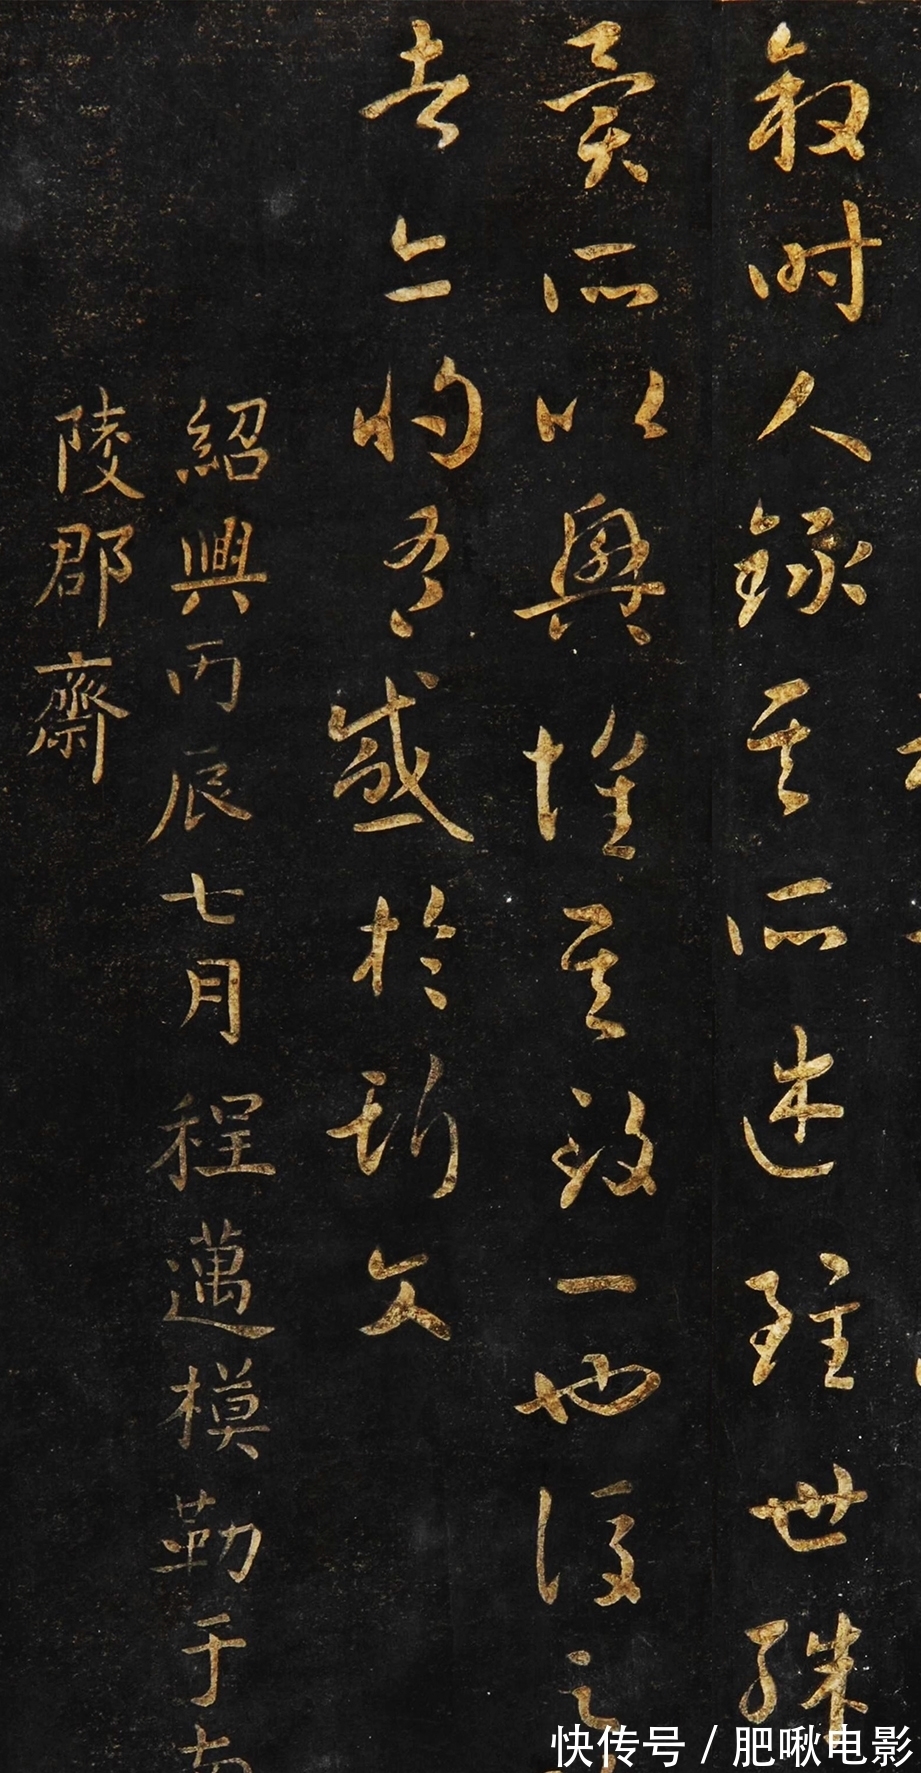 叙時人録其所述雖世殊
異所以興懷其致一也後之
者亦將有感於斯文
紹興丙辰七月程邁模勒于南
陵郡齋
快传号 / 肥啾电影